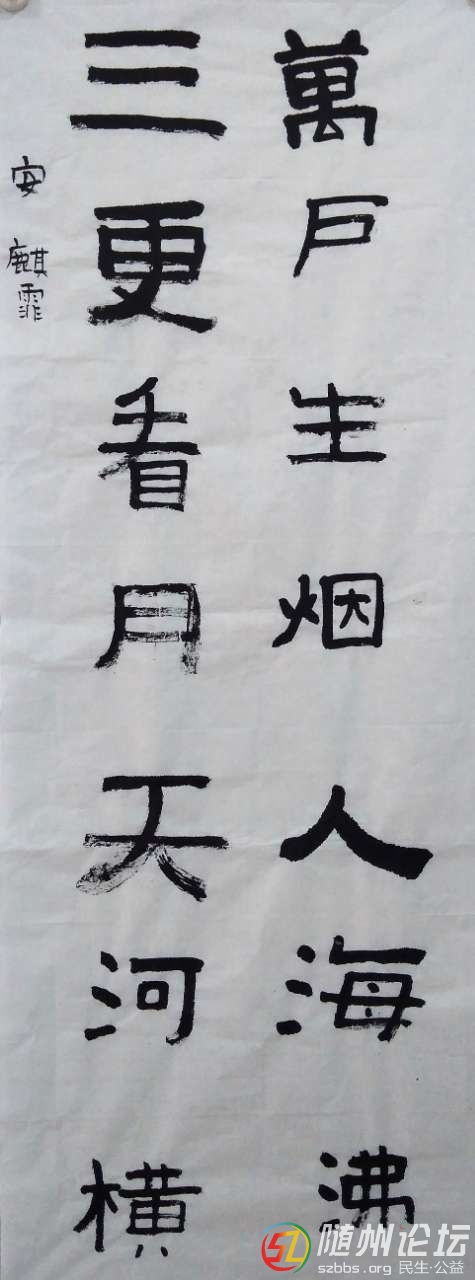 萬戶生烟人海沸
三更看月天河橫
安麒霏
随州论坛
szbbs.org 民生·公益